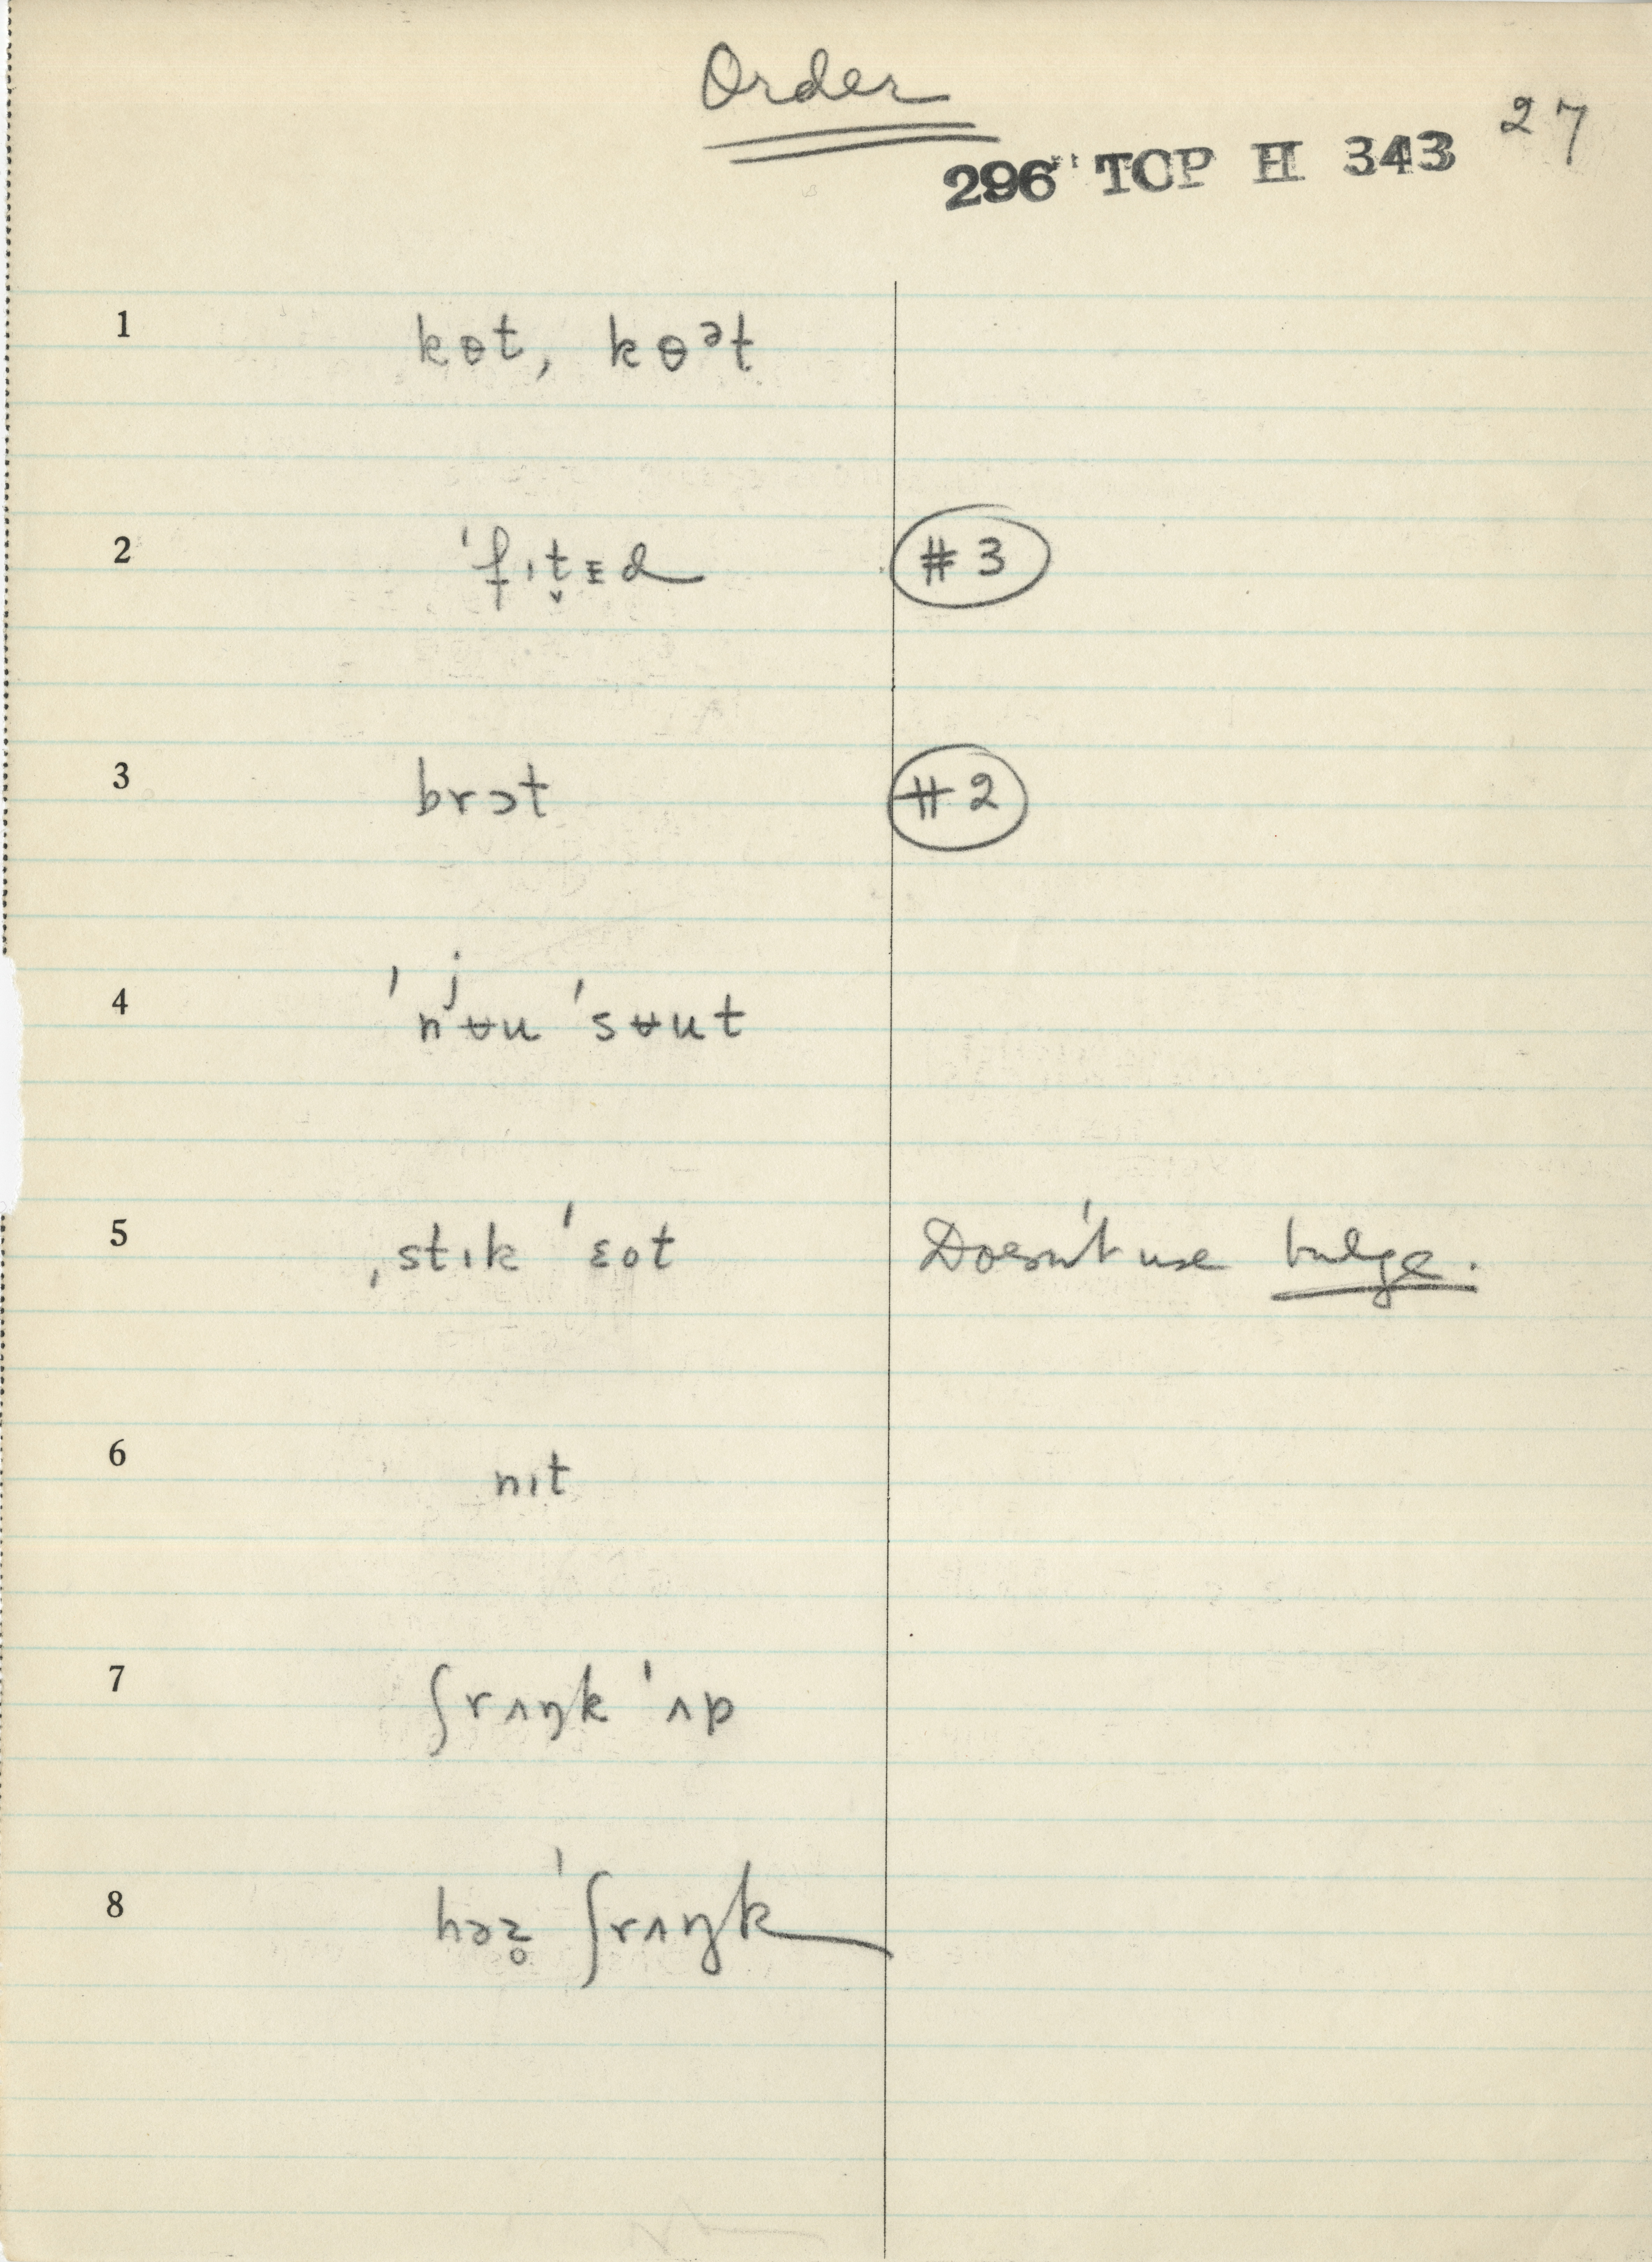 Order
27
296" TCP H 343
1 kɵt, kɵᵊt
2 ˈfɪt̬ᴇd #3
3 brɔt #2
4 ˈnʲʉu ˈsʉut
5 ˌstɪk ˈɛot Doesn't use bulge.
6 nɪt
7 ʃrʌŋk ˈʌp
8 həz̥ ˈʃrʌŋk